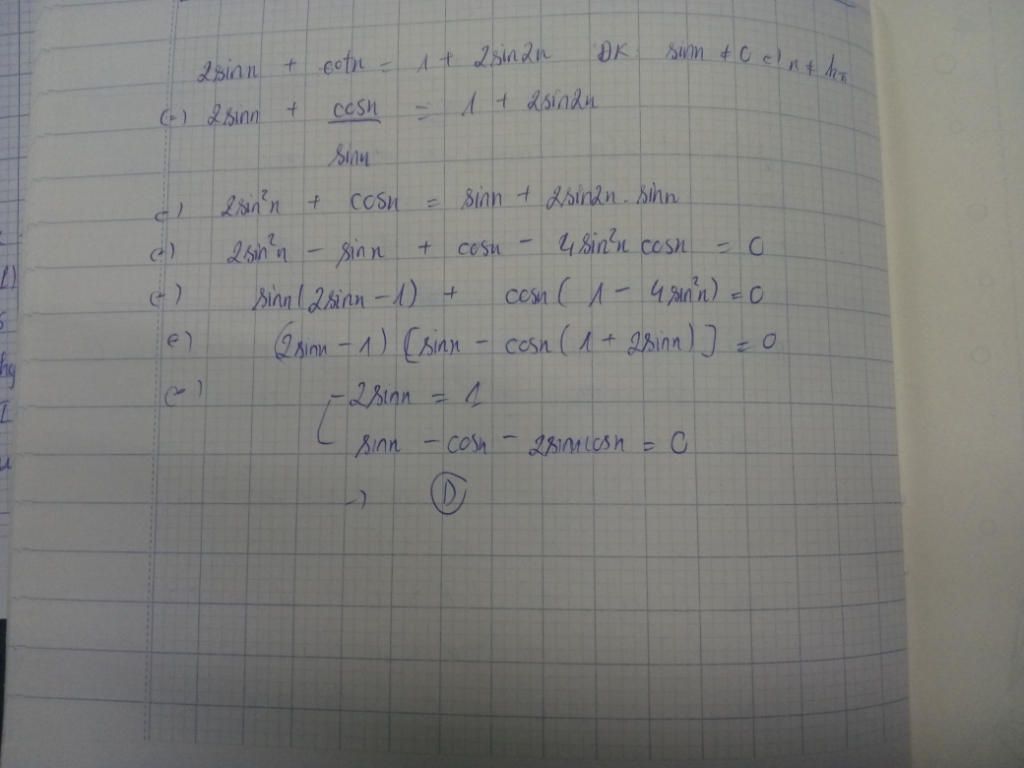 2sinx + cotx = 1 + 2sin2x ĐK sinx ≠ 0 <=> x ≠ kπ
<=> 2sinx + cosx/sinx = 1 + 2sin2x
<=> 2sin²x + cosx = sinx + 2sin2x.sinx
<=> 2sin²x - sinx + cosx - 4sin²x cosx = 0
<=> sinx(2sinx - 1) + cosx(1 - 4sin²x) = 0
<=> (2sinx - 1)[sinx - cosx(1 + 2sinx)] = 0
<=> [ 2sinx = 1
sinx - cosx - 2sinxcosx = 0
-> D